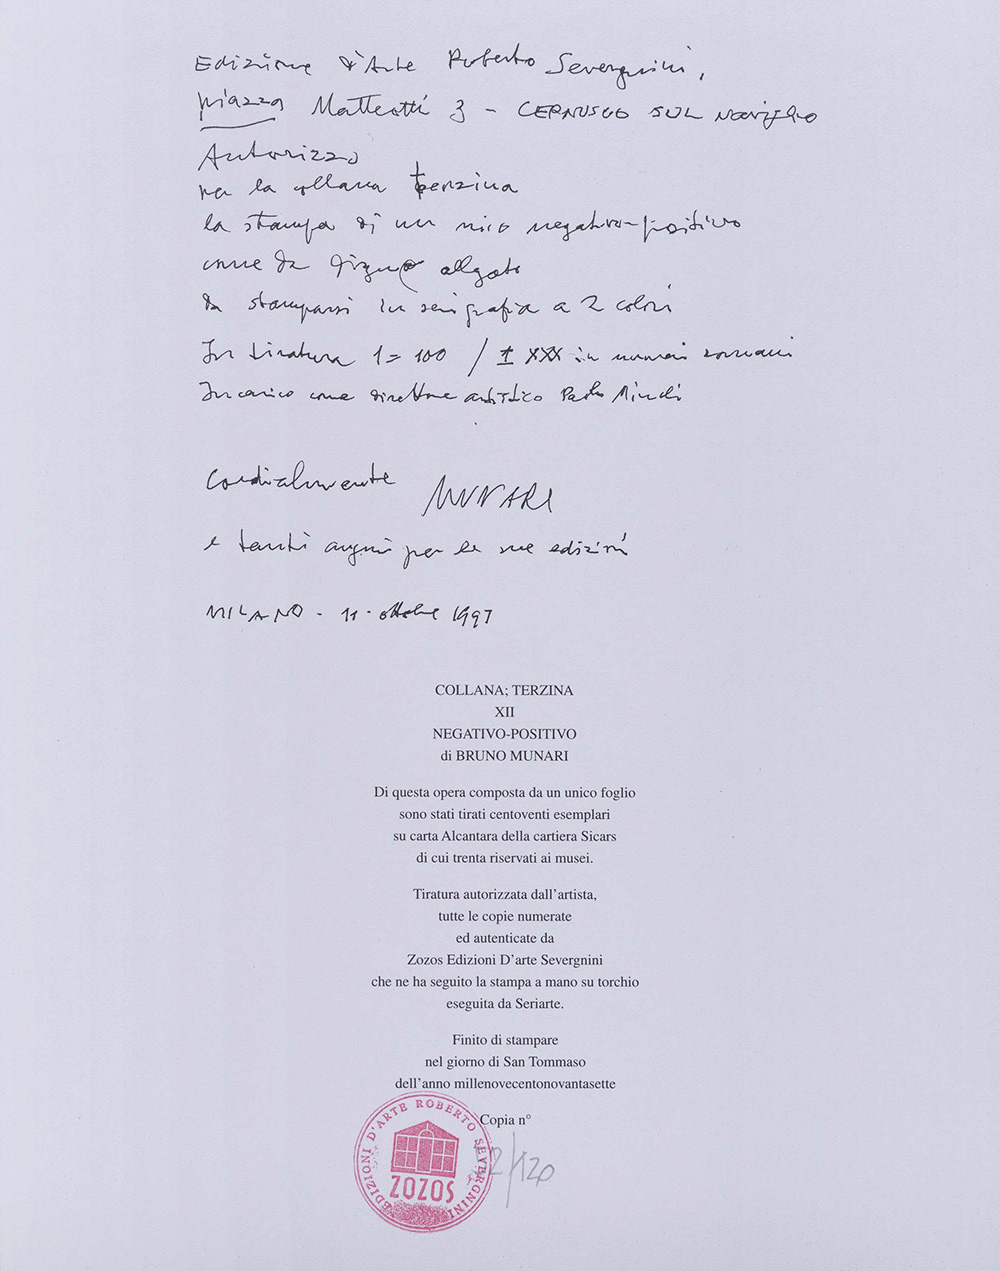 Edizione d'Arte Roberto Severgnini,
piazza Matteotti 3 - CERNUSCO SUL NAVIGLIO
Autorizzo
per la collana terzina
la stampa di un mio negativo-positivo
come da disegno allegato
da stamparsi in serigrafia a 2 colori
In tiratura 1=100 / ± XXX in numeri romani
Incarico come direttore artistico Paolo Minoli
Cordialmente MUNARI
e tanti auguri per le sue edizioni
MILANO - 11 - ottobre 1997
COLLANA; TERZINA
XII
NEGATIVO-POSITIVO
di BRUNO MUNARI
Di questa opera composta da un unico foglio
sono stati tirati centoventi esemplari
su carta Alcantara della cartiera Sicars
di cui trenta riservati ai musei.
Tiratura autorizzata dall'artista,
tutte le copie numerate
ed autenticate da
Zozos Edizioni D'arte Severgnini
che ne ha seguito la stampa a mano su torchio
eseguita da Seriarte.
Finito di stampare
nel giorno di San Tommaso
dell'anno millenovecentonovantasette
Copia n°
/120
EDIZIONI D'ARTE ROBERTO SEVERGNINI
ZOZOS